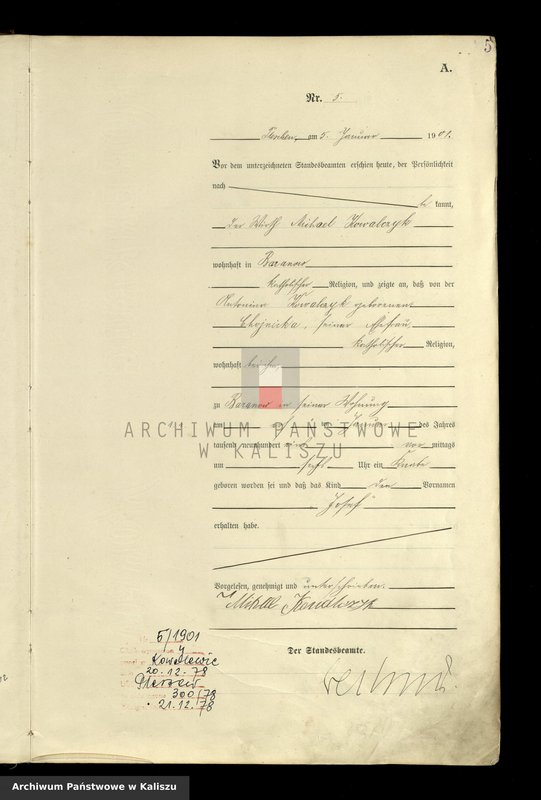 5
A.
Nr. 5.
am 5. Januar 1901.
Vor dem unterzeichneten Standesbeamten erschien heute, der Persönlichkeit
nach
kannt,
der Wirth Michael Kowalczyk
wohnhaft in Baranow
katholischer Religion, und zeigte an, daß von der
Antonina Kowalczyk geborenen
Chojnicka, seiner Ehefrau,
katholischer Religion,
wohnhaft bei ihm
zu Baranow in seiner Wohnung
am Januar des Jahres
tausend neunhundert eins vor mittags
um sechs Uhr ein Knabe
geboren worden sei und daß das Kind den Vornamen
Josef
erhalten habe.
Vorgelesen, genehmigt und unterschrieben.
Kowalczyk
Der Standesbeamte.
5/1901
y
Kowalewic
20.12.78
Pleszew
300/78
21.12.78
ARCHIWUM PAŃSTWOWE
W KALISZU
Archiwum Państwowe w Kaliszu